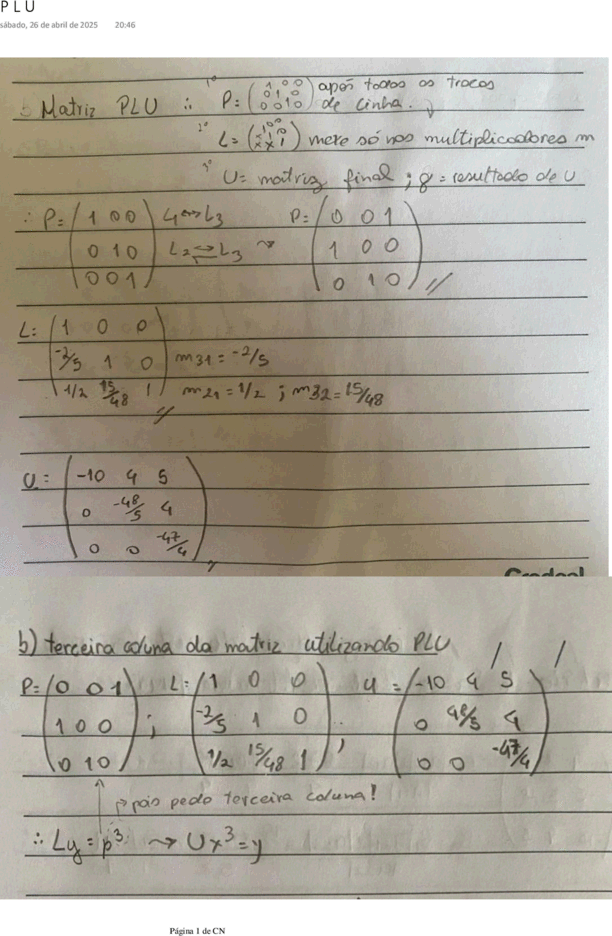 PLU
sábado, 26 de abril de 2025 20:46
1º
∴ Matriz PLU ∴ P = (1 0 0 0 1 0 0 0 1 0) após todas as trocas de linha.
2º L = (1 0 0 x 1 0 x x 1) mexe só nos multiplicadores m
3º U = matriz final ; y = resultado de U
∴ P = (1 0 0 L1 ↔ L3 P = (0 0 1
0 1 0 L2 ⇌ L3 ⤳ 1 0 0
0 0 1) 0 1 0) //
L = (1 0 0
-2/5 1 0 m31 = -2/5
1/2 15/48 1) m21 = 1/2 ; m32 = 15/48
//
U = (-10 4 5
0 -48/5 4
0 0 -47/4) //
Credeal
b) terceira coluna da matriz utilizando PLU / /
P = (0 0 1 L = (1 0 0 U = (-10 4 5
1 0 0 ; -2/5 1 0 0 48/5 4
0 1 0) 1/2 15/48 1) , 0 0 -47/4)
↑ → pois pede terceira coluna!
∴ Ly = p³ ⤳ Ux³ = y
Página 1 de CN